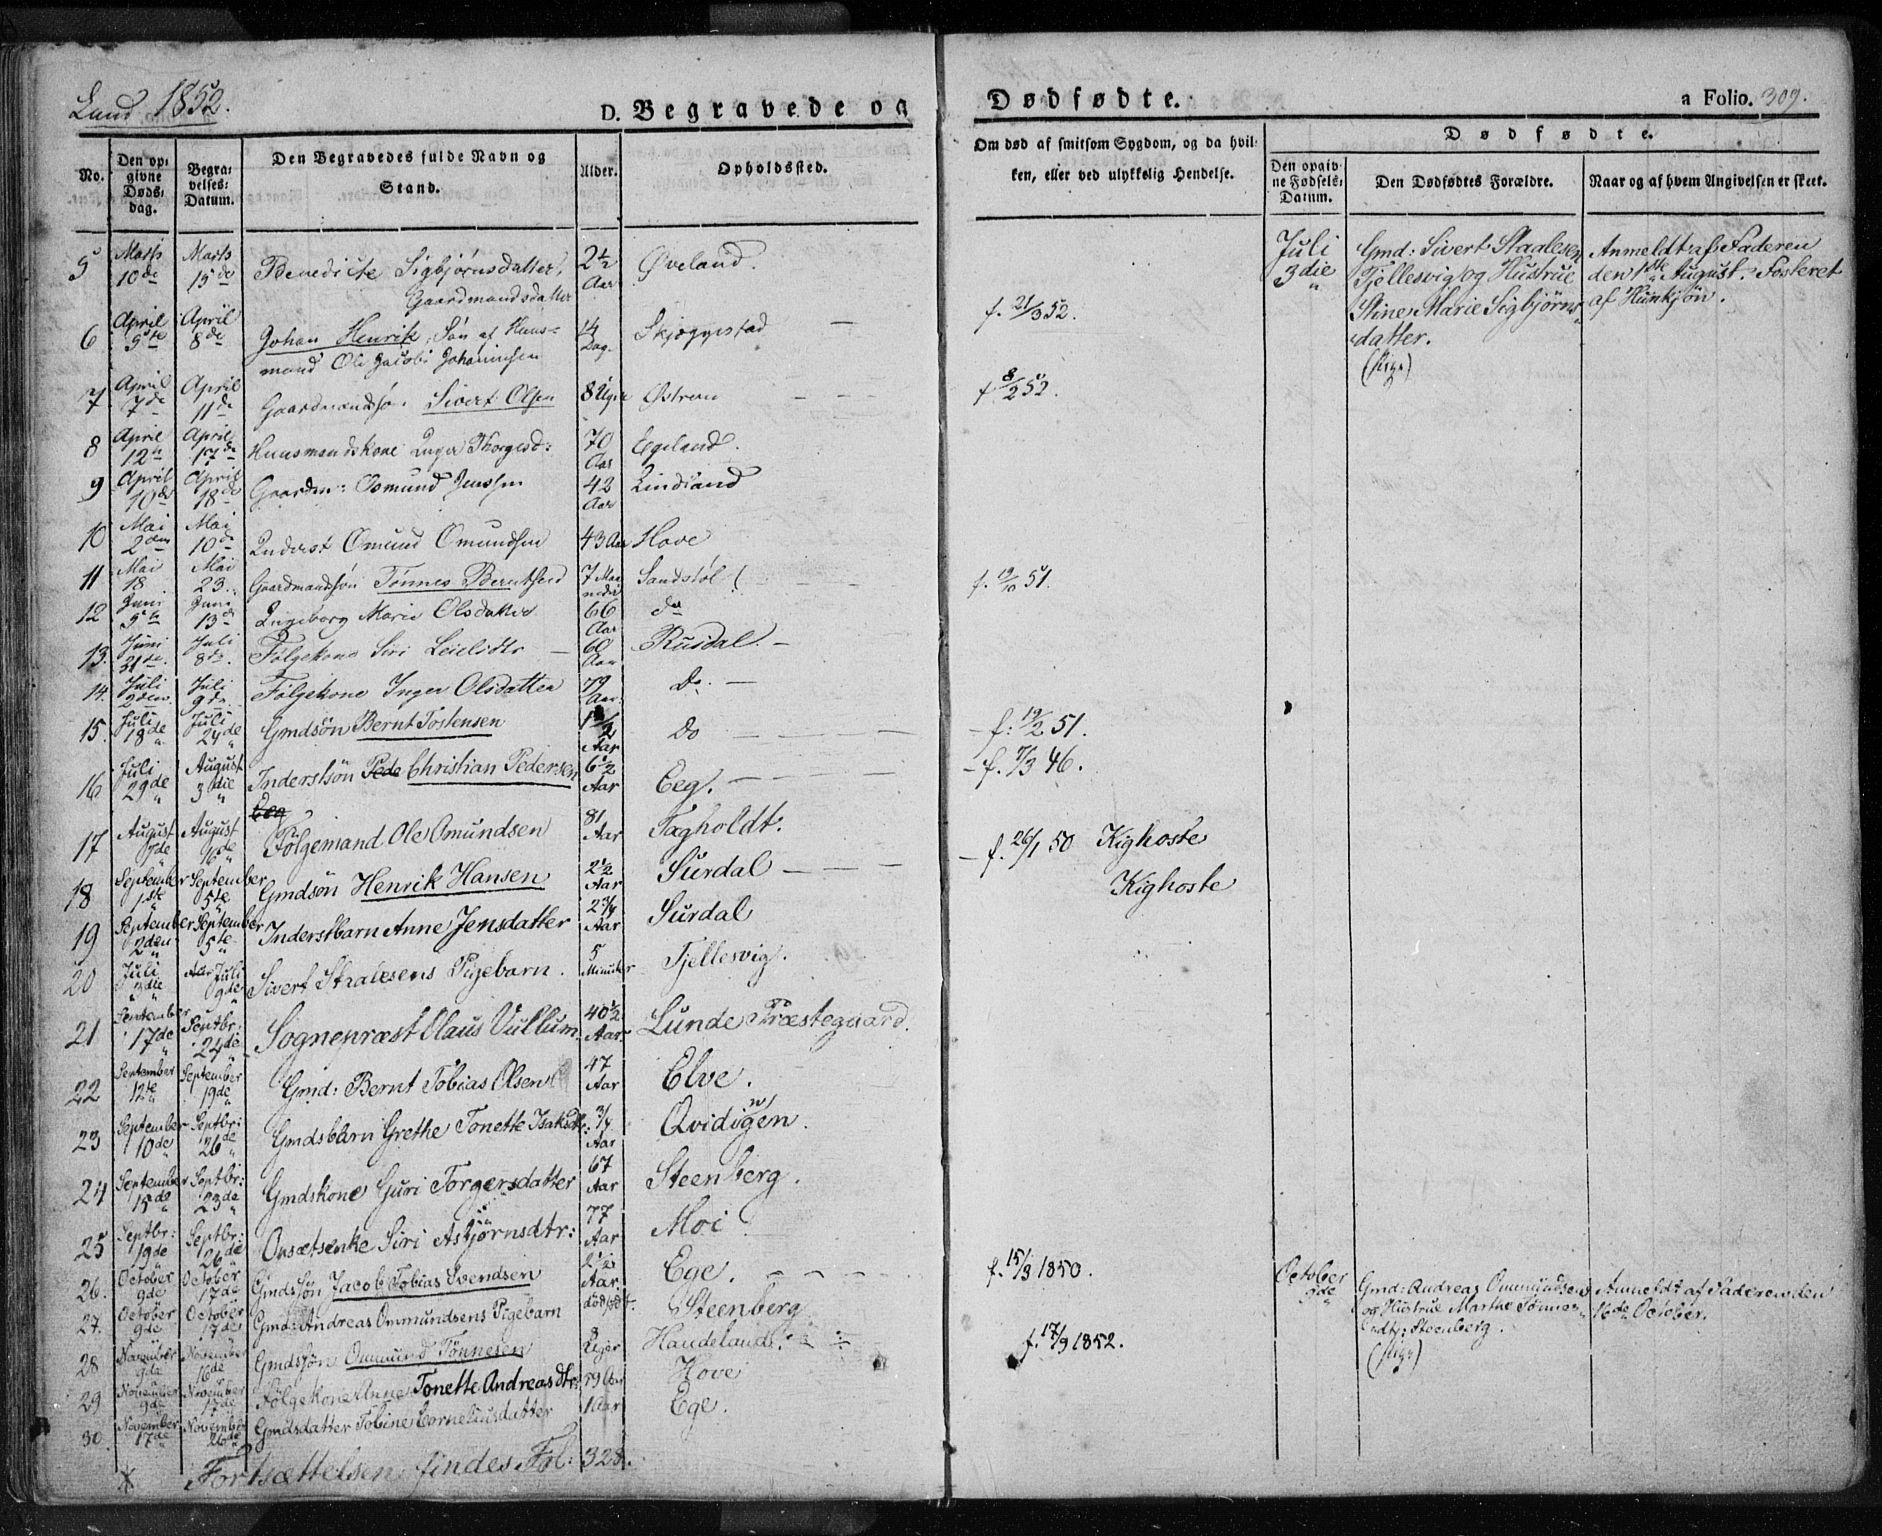 Lund 1852.
D. Begravede og Dødfødte. a Folio. 309.
No. Den opgivne Dødsdag. Begravelses-Datum. Den Begravedes fulde Navn og Stand. Alder. Opholdssted. Om død af smitsom Sygdom, og da hvilken, eller ved ulykkelig Hendelse. Dødfødte.
Den opgivne Fødsels-Datum. Den Dødfødtes Forældre. Naar og af hvem Angivelsen er skeet.
5 Marts 10de Marts 15de Benedicte Sigbjørnsdatter, Gaardmandsdatter 2½ Aar Øveland.
6 April 5te April 8de Johan Henrik, Søn af Huusmand Ole Jacob Johannesen 14 Dag. Skjæggestad f. 21/3 52.
7 April 7de April 11de Gaardmandssøn Sivert Olsen 8 Uger Østrem f. 8/2 52.
8 April 12te April 17de Huusmandskone Inger Thorgesd: 70 Aar Egeland.
9 April 10de April 18de Gaardm: Osmund Jenssen 42 Aar Lindland
10 Mai 2den Mai 10de Inderst Omund Omundsen 43 Aar Hove
11 Mai 18 Mai 23. Gaardmandssøn Tønnes Berntsen 7 Maaneder Sandstøl f. 19/10 51.
12 Juni 5te Juni 13de Ingeborg Marie Olsdatter 66 Aar do
13. Juni 21de. Juli 8de. Følgekone Siri Leielidtr 60 Aar Rusdal.
14. Juli 2den. Juli 9de. Følgekone Inger Olsdatter 79 Aar. Do.
15. Juli 18de Juli 24de Gmdsøn Bernt Tostensen 1½ Aar Do f: 19/2 51.
16 Juli 29de August 3die Inderstsøn Pede Christian Pedersen Eeg 6½ Aar Eeg. f. 7/3 46.
17 August 7de August 16de Følgemand Ole Omundsen 81 Aar Fagholdt.
18 September 1ste September 5te Gmdsøn Henrik Hansen 2½ Aar Surdal f. 26/1 50 Kighoste
19 September 2den September 5te Inderstbarn Anne Jensdatter 2¾ Aar Surdal Kighoste
20 Juli 3die Juli 9de Sivert Staalesens Pigebarn. 5 Minuter Fjellesvig.
21 September 17de Septbr: 24de Sognepræst Olaus Vullum. 40½ Aar. Lunde Præstegaard.
22 September 12te September 19de Gmd: Bernt Tobias Olsen 47 Aar Elve.
23 September 10de Septbr: 26de Gmdsbarn Grethe Tonette Isaksdtr: ¾ Aar Qvidigen.
24 September 15de Septbr: 23de Gmdskone Guri Torgersdatter 67 Aar Steenberg.
25 Septbr: 19de Septbr: 26de Onsætsenke Siri Asbjørnsdtr: 77 Aar Moi
26. October 9de October 17de Gmdssøn Jacob Tobias Svendsen 2½ Aar. Ege. f. 15/3 1850.
27. October 9de October 17de Gmd: Andreas Ommundsens Pigebarn dødfødt. Steenberg
28 November 9de November 16de Gmdssøn Ommund Tønnesen Uger Handeland. f. 17/9 1852.
29 November 9de November 17de Følgekone Anne Tonette Andreasdtr: 79 Aar Hove
30. November 17de November 26de Gmdsdatter Tobine Corneliusdatter 1 Aar Ege.
Fortsættelsen findes Fol: 328.
Juli 3die Gmd: Sivert Staalesen Fjellesvig og Hustrue Stine Marie Sigbjørnsdatter. (Pige) Anmeldt af Faderen den 1ste August. Fosteret af Hunkjøn.
October 9de Gmd: Andreas Ommundsen og Hustrue Marthe Tønnesdtr: Steenberg. (Pige) Anmeldt af Faderen den 16de October.